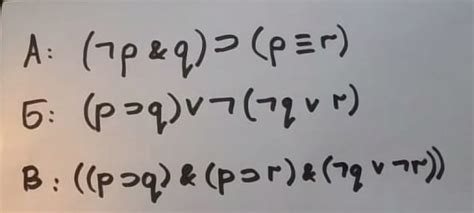 А: (¬p & q) ⊃ (p ≡ r)
Б: (p ⊃ q) ∨ ¬(¬q ∨ r)
В: ((p ⊃ q) & (p ⊃ r) & (¬q ∨ ¬r))